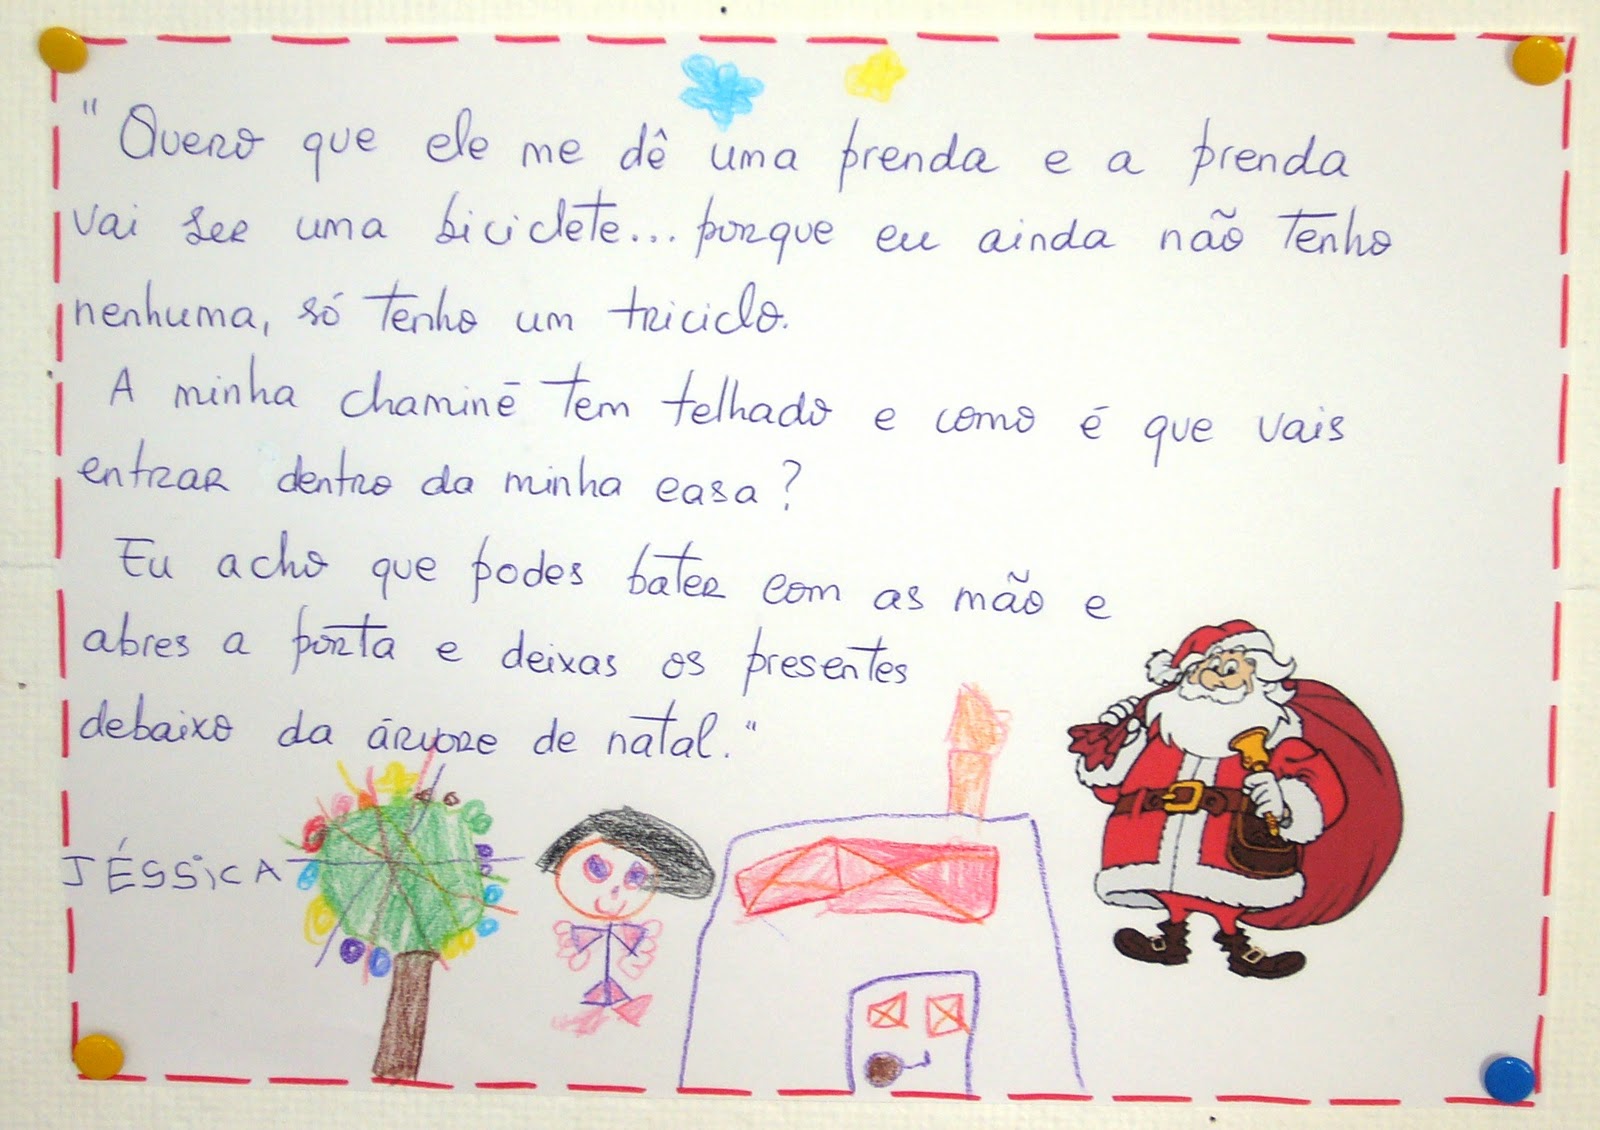 "Quero que ele me dê uma prenda e a prenda
vai ser uma biciclete... porque eu ainda não tenho
nenhuma, só tenho um triciclo.
A minha chaminé tem telhado e como é que vais
entrar dentro da minha casa?
Eu acho que podes bater com as mão e
abres a porta e deixas os presentes
debaixo da árvore de natal."
JÉSSiCA